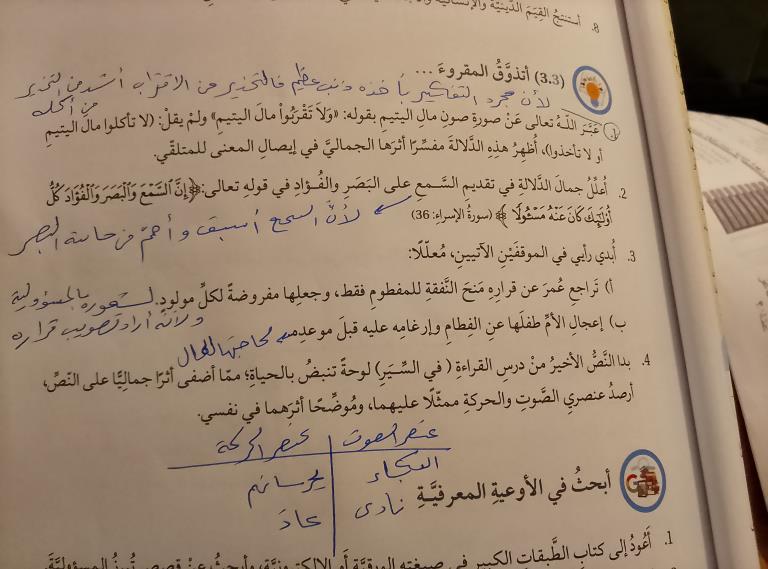 8. أستنتجُ القِيَمَ الدِّينيّةَ والإنسانيّةَ
(3.3) أتذوَّقُ المقروءَ ...
لأن مجرد التفكير بأخذه ذنب عظيم فالتحذير من الاقتراب أشد من التحذير
من أكله
1. عَبَّرَ اللّهُ تعالى عَنْ صورةِ صونِ مالِ اليتيمِ بقوله: «وَلَا تَقْرَبُوا۟ مالَ اليتيمِ» ولمْ يقلْ: (لا تأكلوا مالَ اليتيمِ
أو لا تأخذوا)، أُظهِرُ هذهِ الدَّلالةَ مفسِّرًا أثرَها الجماليَّ في إيصالِ المعنى للمتلقّي.
2. أُعلِّلُ جمالَ الدَّلالةِ في تقديمِ السَّمعِ على البَصَرِ والفُؤادِ في قولهِ تعالى: ﴿إِنَّ ٱلسَّمْعَ وَٱلْبَصَرَ وَٱلْفُؤَادَ كُلُّ
أُو۟لَٰٓئِكَ كَانَ عَنْهُ مَسْـُٔولًا﴾ (سورةُ الإسراءِ: 36)
لأنَّ السمع أسبق وأهمّ من حاسة البصر
3. أُبدي رأيي في الموقفَيْنِ الآتيينِ، مُعلّلًا:
أ) تَراجعِ عُمرَ عن قرارِهِ مَنحَ النَّفقةِ للمفطومِ فقط، وجعلِها مفروضةً لكلِّ مولودٍ. لشعوره بالمسؤولية
ولأنه أراد تصويب قراره
ب) إعجالِ الأمِّ طفلَها عنِ الفِطامِ وإرغامِه عليه قبلَ موعدِه. لحاجتها للمال
4. بدا النَّصُّ الأخيرُ منْ درسِ القراءةِ (في السِّيَرِ) لوحةً تنبضُ بالحياةِ؛ ممّا أضفى أثرًا جماليًّا على النّصِّ،
أرصدُ عنصري الصَّوتِ والحركةِ ممثّلًا عليهما، ومُوضِّحًا أثرَهما في نفسي.
عنصر الصوت | عنصر الحركة
البكاء | يحرسانهم
نادى | عاد
أبحثُ في الأوعيةِ المعرفيَّةِ
1. أَعُودُ إلى كتابِ الطَّبقاتِ الكبيرِ في صيغتِهِ الورقيّةِ أو الإلكترونيّةِ، وأبحثُ عنْ قصصٍ تُبرزُ المسؤوليّةَ،